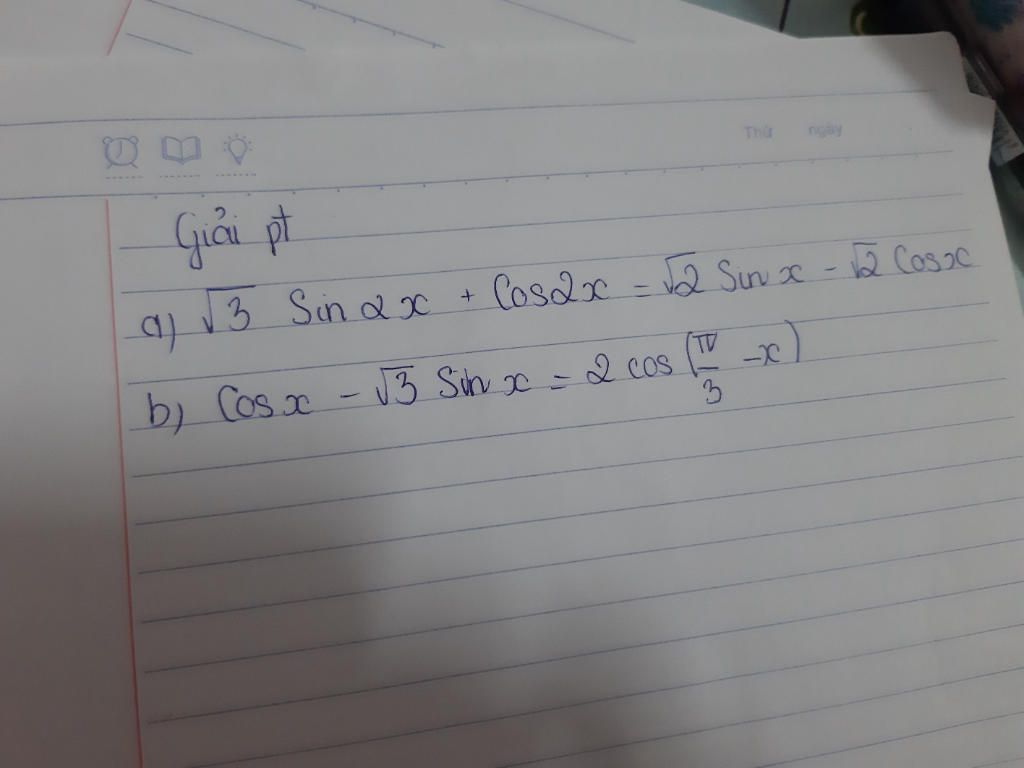 Thứ ngày
Giải pt
a) √3 Sin 2x + Cos2x = √2 Sin x - √2 Cosx
b) Cos x - √3 Sin x = 2 cos (π/3 - x)